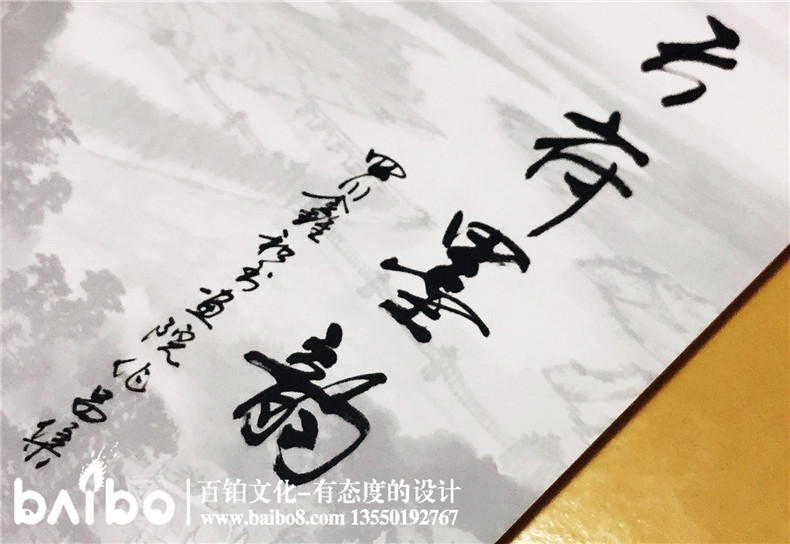 墨韵
四川鑫书画院集
baibo
百铂文化-有态度的设计
www.baibo8.com 13550192767